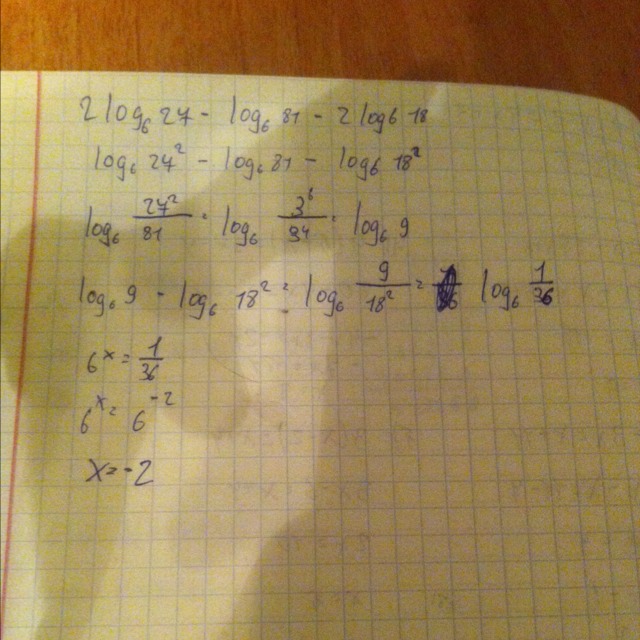 2 log₆ 27 - log₆ 81 - 2 log6 18
log₆ 27² - log₆ 81 - log₆ 18²
log₆ 27²/81 = log₆ 3⁶/34 = log₆ 9
log₆ 9 - log₆ 18² = log₆ 9/18² = log₆ 1/36
6ˣ = 1/36
6ˣ = 6⁻²
x = -2